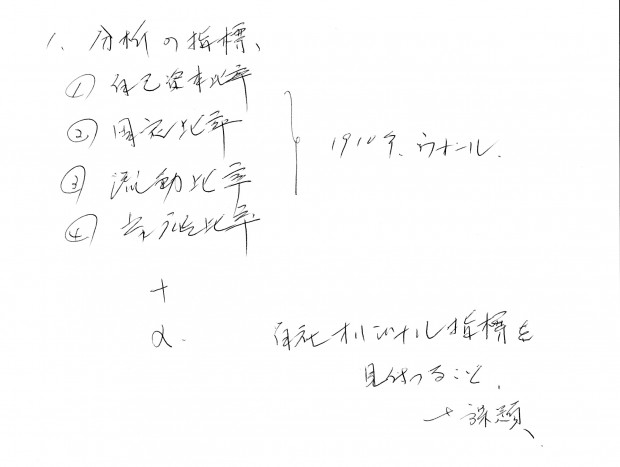 1. 分析の指標、
① 自己資本比率
② 固定比率
③ 流動比率
④ 当座比率
1910年、ウォール
+
α.
自社オリジナル指標を
見付ること、
課題、